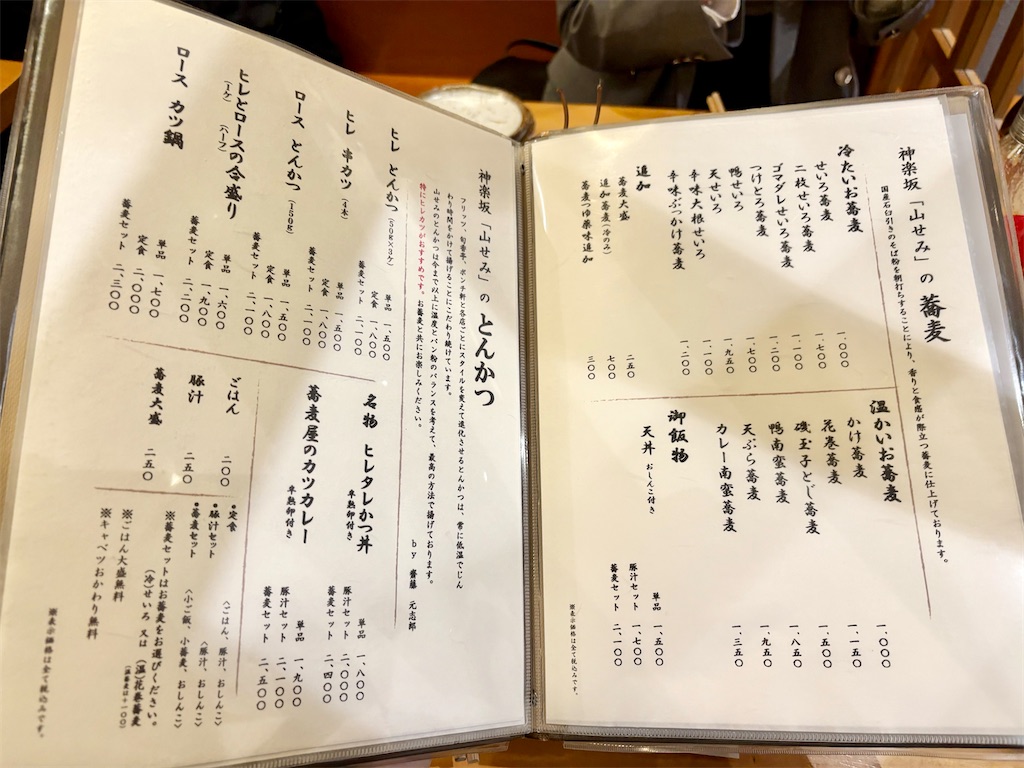 神楽坂「山せみ」の 蕎麦
国産石臼引きのそば粉を朝打ちすることにより、香りと食感が際立つ蕎麦に仕上げております。
冷たいお蕎麦
せいろ蕎麦 一、〇〇〇
二枚せいろ蕎麦 一、七〇〇
ゴマダレせいろ蕎麦 一、一〇〇
つけとろ蕎麦 一、二〇〇
鴨せいろ 一、七五〇
天せいろ 一、九五〇
辛味大根せいろ 一、一〇〇
辛味ぶっかけ蕎麦 一、二〇〇
追加
蕎麦大盛 二五〇
追加蕎麦(冷のみ) 七〇〇
蕎麦つゆ薬味追加 三〇〇
温かいお蕎麦
かけ蕎麦 一、〇〇〇
花巻蕎麦 一、一五〇
磯玉子とじ蕎麦 一、五〇〇
鴨南蛮蕎麦 一、八五〇
天ぷら蕎麦 一、九五〇
カレー南蛮蕎麦 一、三五〇
御飯物
天丼 おしんこ付き
単品 一、五〇〇
豚汁セット 一、七〇〇
蕎麦セット 二、一〇〇
※表示価格は全て税込みです。
神楽坂「山せみ」の とんかつ
フリッツ、旬香亭、ポンチ軒と各店ごとにスタイルを変えて進化させるとんかつは、常に低温でじん
わり時間をかけて揚げることにこだわり続けています。
山せみのとんかつは今まで以上に温度とパン粉のバランスを考えて、最高の方法で揚げております。
特にヒレカツがおすすめです。お蕎麦と共にお楽しみください。
by 齋藤 元志郎
ヒレ とんかつ
単品 一、五〇〇
定食 一、八〇〇
蕎麦セット 二、一〇〇
ヒレ 串カツ (4本)
単品 一、五〇〇
定食 一、八〇〇
蕎麦セット 二、一〇〇
ロース とんかつ (150g)
単品 一、五〇〇
定食 一、八〇〇
蕎麦セット 二、一〇〇
ヒレとロースの合盛り
(1ケ) (ハーフ)
単品 一、六〇〇
定食 一、九〇〇
蕎麦セット 二、二〇〇
ロース カツ鍋
単品 一、七〇〇
定食 二、〇〇〇
蕎麦セット 二、三〇〇
名物 ヒレタレかつ丼
半熟卵付き
単品 一、八〇〇
豚汁セット 二、〇〇〇
蕎麦セット 二、四〇〇
蕎麦屋のカツカレー
半熟卵付き
単品 一、九〇〇
豚汁セット 二、一〇〇
蕎麦セット 二、五〇〇
ごはん 二〇〇
豚汁 二五〇
蕎麦大盛 二五〇
●定食 〈ごはん、豚汁、おしんこ〉
●豚汁セット 〈豚汁、おしんこ〉
●蕎麦セット 〈小ご飯、小蕎麦、おしんこ〉
※蕎麦セットはお蕎麦をお選びください。
(冷)せいろ 又は (温)花巻蕎麦
(温蕎麦は+100)
※ごはん大盛無料
※キャベツおかわり無料
※表示価格は全て税込みです。